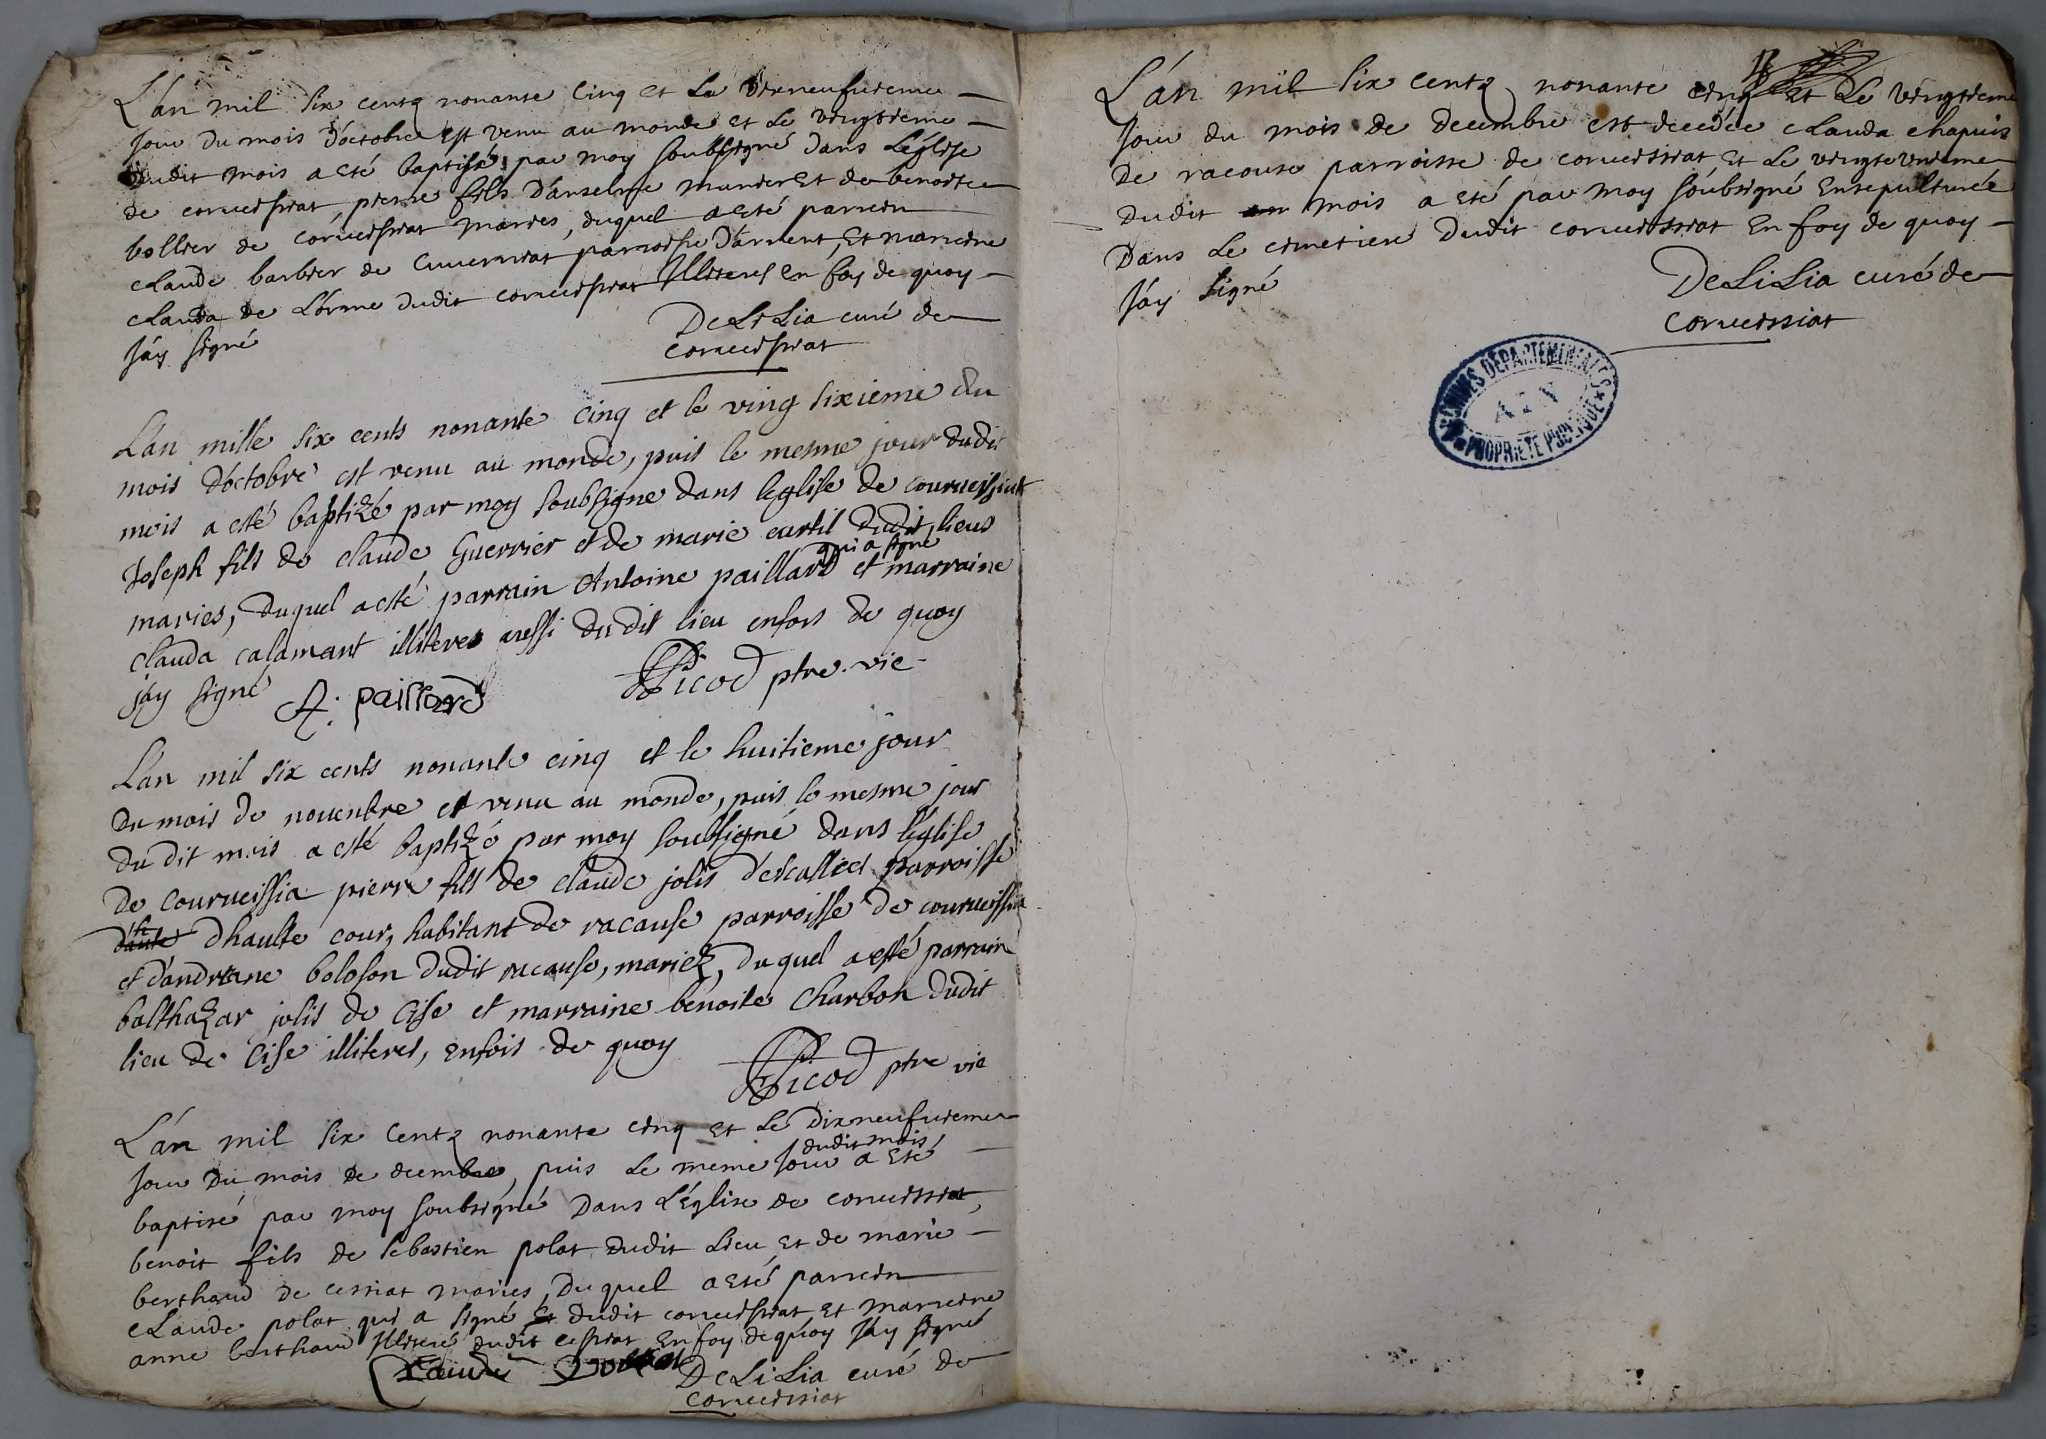 L'an mil six centz nonante cinq et le dixneufuieme
jour du mois d'octobre est venu au monde et le vingtieme
dudit mois a eté baptisé par moy soubsigné dans l'église
de corueissiat, pierre fils d'anselme munier et de benoite
bollier de corueissiat mariés, duquel a eté parrein
claude barbier de parroisse d'arnent, et marreine
clauda de l'orme dudit corueissiat Illiterés en foy de quoy
j'ay signé
DeLiLia curé de
corueissiat
L'an mille six cents nonante cinq et le ving sixieme du
mois d'octobre est venu au monde, puis le mesme jour dudit
mois a esté baptizé par moy soubsigne dans leglise de courueissiat
Joseph fils de claude Guerrier et de marie curtil dudit lieus
qui a signé
maries, duquel a esté parrain Antoine paillard et marraine
clauda calamant illiteres aussi du dit lieu enfois de quoy
j'ay signé
A. paillard
Picod ptre vic
L'an mil six cents nonante cinq et le huitieme jour
du mois de nouenbre est venu au monde, puis le mesme jour
du dit mois a esté baptizé par moy soubsigné dans l'église
de courueissia pierre fils de claude jolis d'escallies parroisse
dhaulte cour, habitant de racause parroisse de courueissia
et d'andreane boloson dudit racause, mariez, du quel a esté parrain
balthazar jolis de Cise et marraine benoite Charbon dudit
lieu de Cise illiteres, enfois de quoy
Picod ptre vic
L'an mil six centz nonante cinq et le dixneufuieme
dudit mois
jour du mois de decembre, puis le meme jour a eté
baptisé par moy soubsigné dans l'église de corueissiat,
benoit fils de sebastien polat dudit lieu et de marie
berthaud de cessiat mariés, duquel a eté parrein
claude polat qui a signé dudit corueissiat et marreine
anne berthaud Illiteré dudit cessiat en foy de quoy j'ay signé
Claude Pollat
DeLiLia curé de
corueissiat
L'an mil six centz nonante cinq et le vingtieme
jour du mois de decembre est decedée clauda chapuis
de racouse parroisse de corueissiat et le vingtevnieme
dudit mois a eté par moy soubsigné ensepulturée
dans le cimetiere dudit corueissiat en foy de quoy
j'ay signé
DeLiLia curé de
corueissiat
ARCHIVES DÉPARTEMENTALES
AIN
PROPRIÉTÉ PUBLIQUE